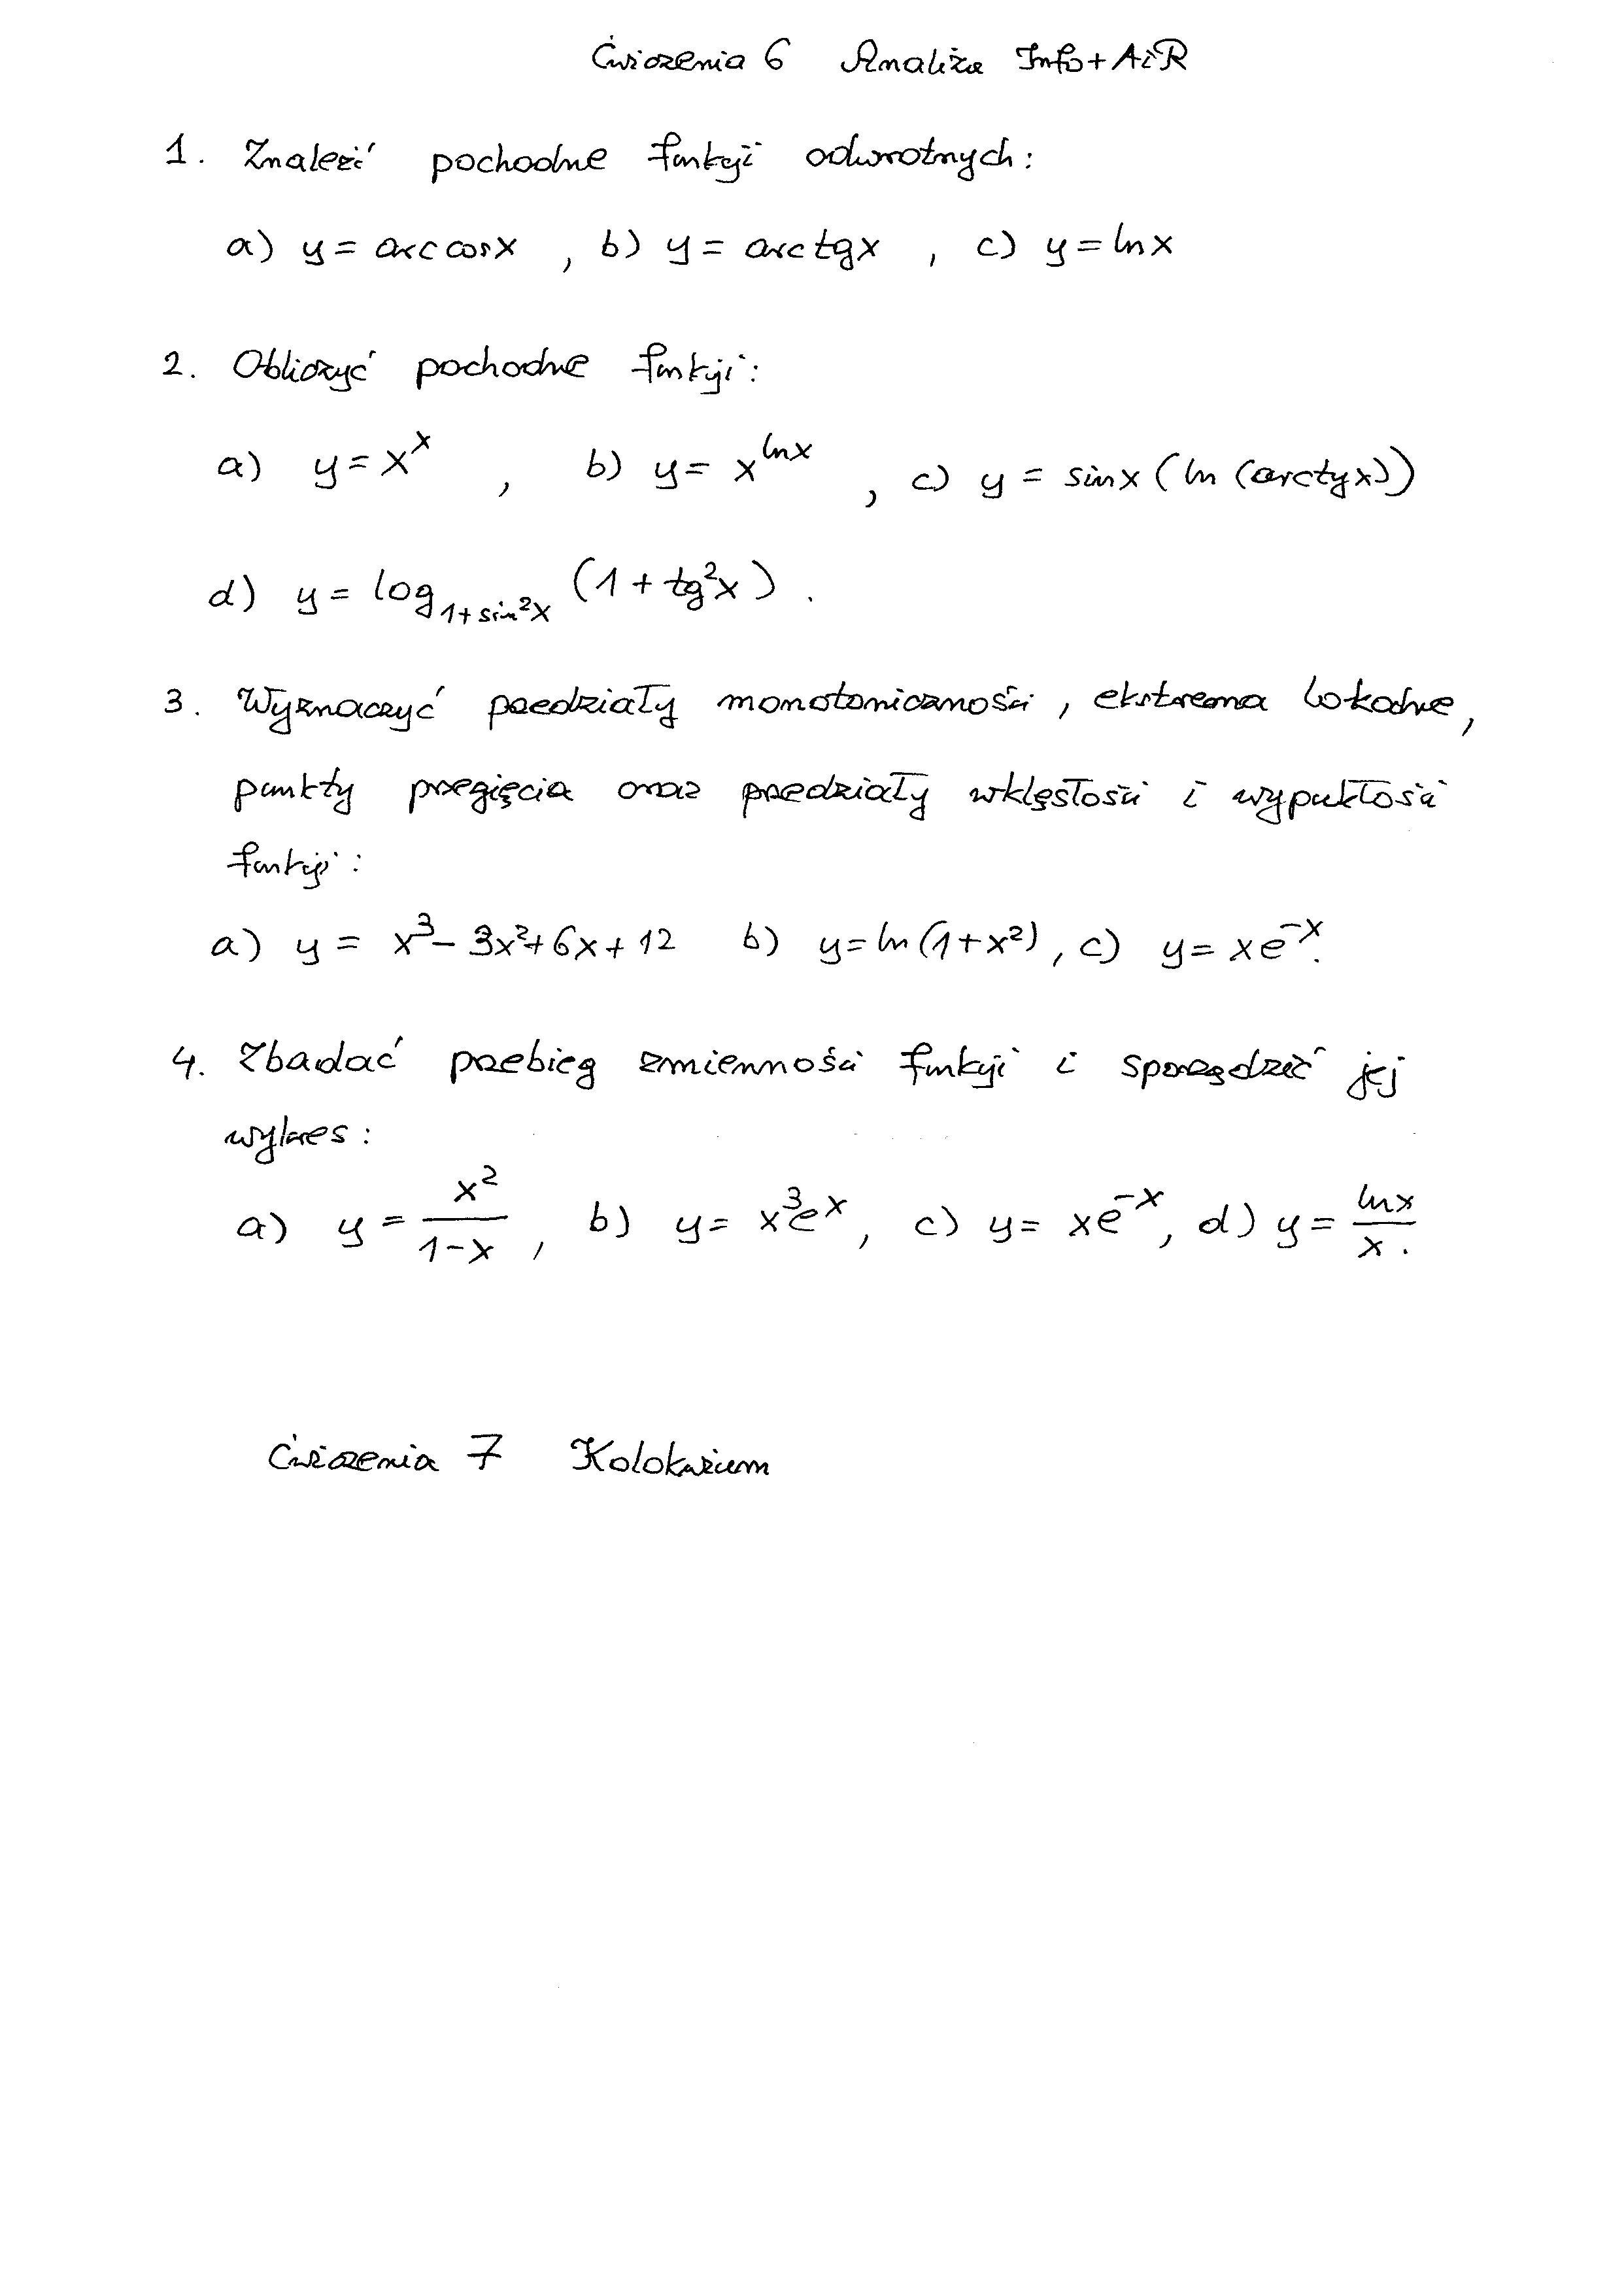 Ćwiczenia 6 Analiza Info+AiR
1. Znaleźć pochodne funkcji odwrotnych:
a) y = arccosx , b) y = arctgx , c) y = lnx
2. Obliczyć pochodne funkcji:
a) y = x^x , b) y = x^lnx , c) y = sinx (ln (arctgx))
d) y = log_{1+sin²x} (1 + tg²x) .
3. Wyznaczyć przedziały monotoniczności, ekstrema lokalne,
punkty przegięcia oraz przedziały wklęsłości i wypukłości
funkcji:
a) y = x³ - 3x² + 6x + 12 b) y = ln(1+x²) , c) y = xe^{-x}.
4. Zbadać przebieg zmienności funkcji i sporządzić jej
wykres:
a) y = x²/(1-x) , b) y = x³e^x , c) y = xe^{-x} , d) y = lnx/x .
Ćwiczenia 7 Kolokwium